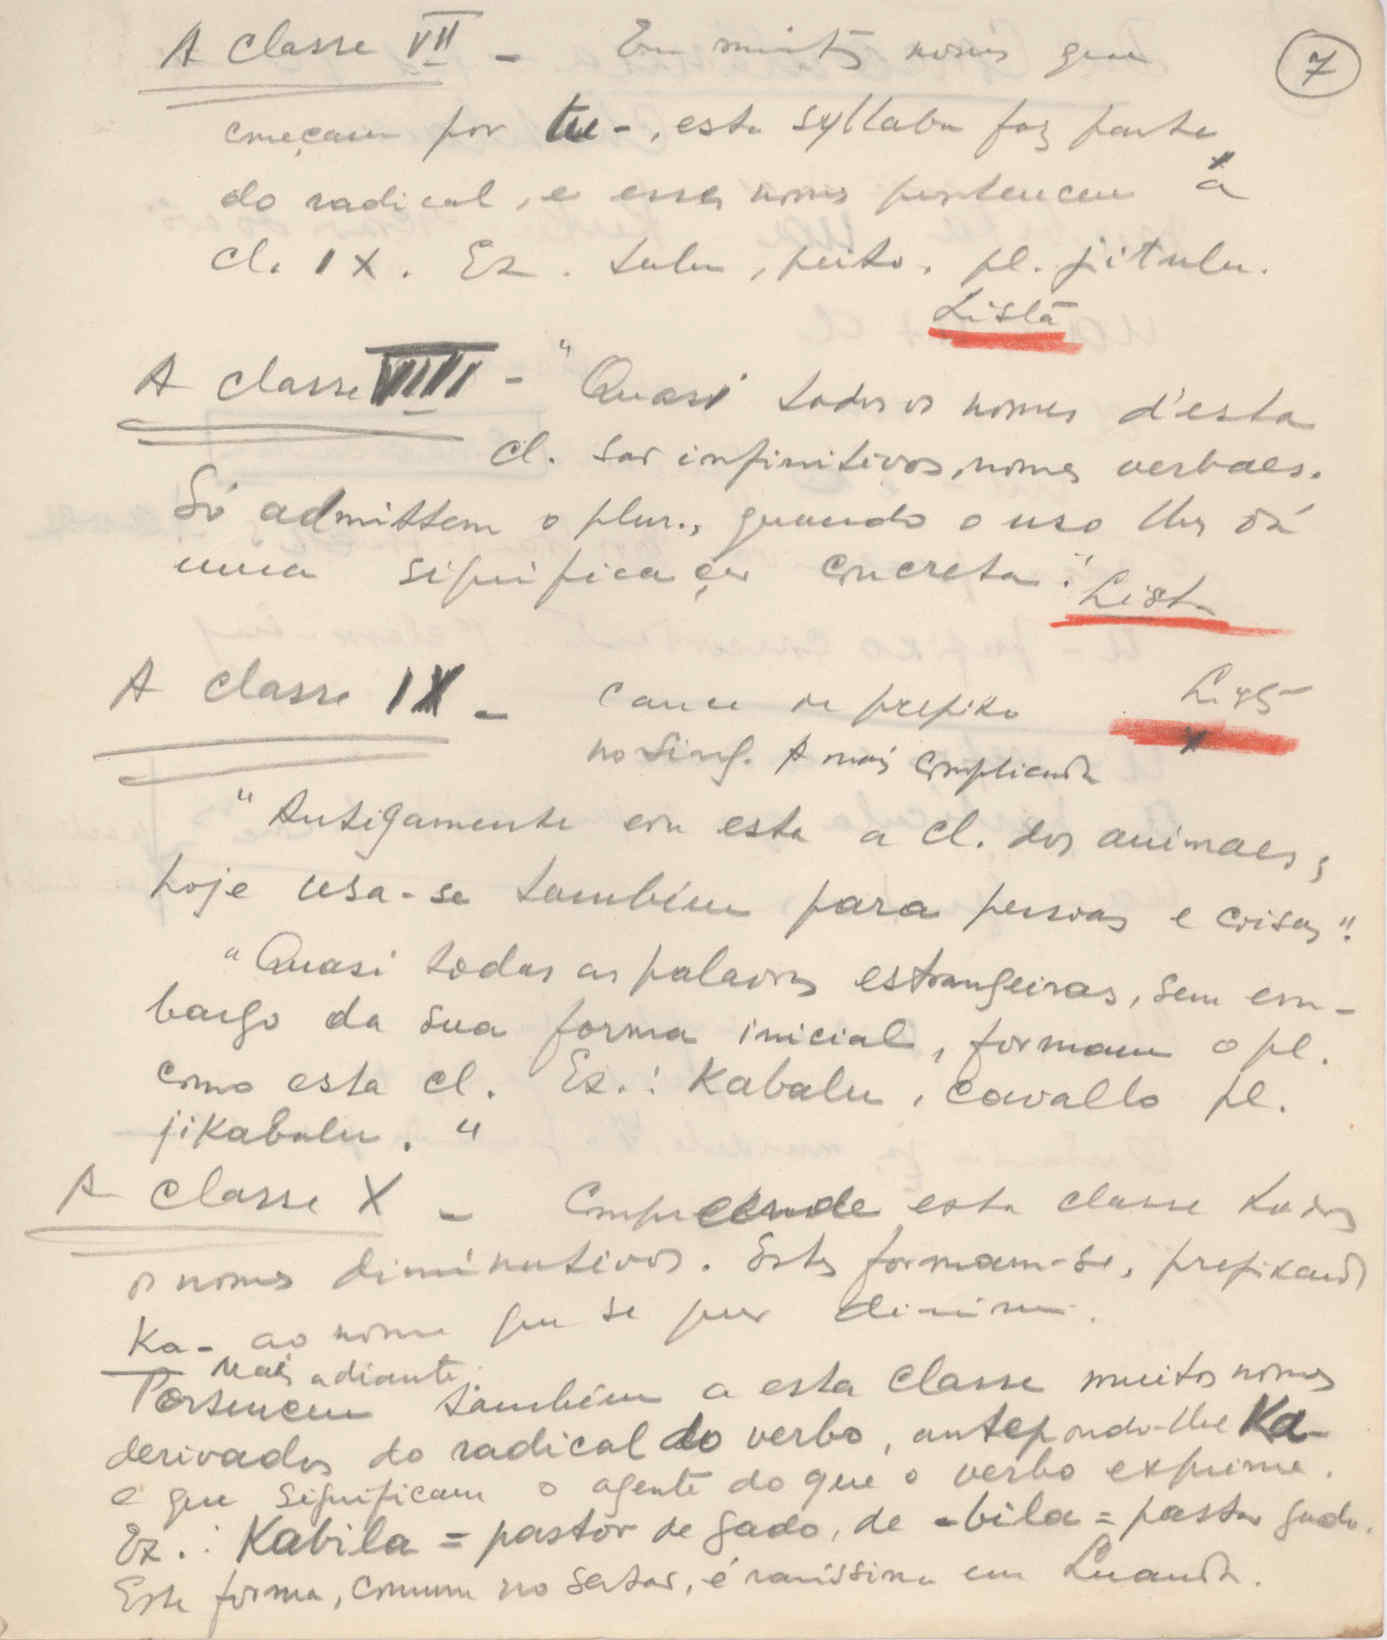 7
A classe VII - Em muitos nomes que
começam por tu-, esta syllaba faz parte
do radical, e esses nomes pertencem á
cl. IX. Ex. tulu, peito, pl. jitulu.
Lista
A classe VIII - "Quasi todos os nomes d'esta
cl. são infinitivos, nomes verbaes.
Só admittem o plur., quando o uso lhes dá
uma significação concreta."
Lista
A classe IX - Carece de prefixo
Lista
no sing. A mais complicada
"Antigamente era esta a cl. dos animaes,
hoje usa-se também para pessoas e coisas".
"Quasi todas as palavras estrangeiras, sem em-
bargo da sua forma inicial, formam o pl.
como esta cl. Ex.: Kabalu, cavallo pl.
jikabalu."
A classe X - Comprehende esta classe todos
os nomes diminutivos. Estes formam-se, prefixando
Ka- ao nome que se quer diminuir.
mais adiante
Pertencem também a esta classe muitos nomes
derivados do radical do verbo, antepondo-lhe Ka-
e que significam o agente do que o verbo exprime.
Ex.: Kabila = pastor de gado, de -bila = pastar gado.
Esta forma, comum no sertão, é raríssima em Luanda.